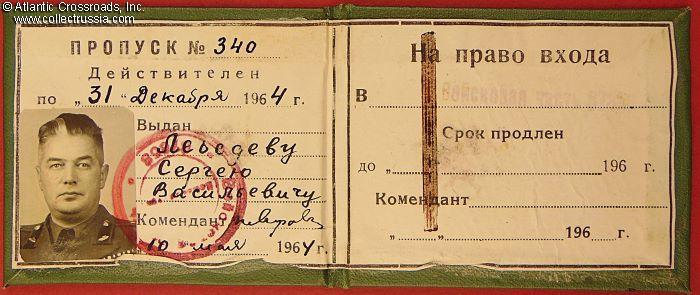 © Atlantic Crossroads, Inc.
www.collectrussia.com
ПРОПУСК № 340
Действителен
по „ 31 “ Декабря 1964 г.
Выдан
Лебедеву
Сергею
Васильевичу
Комендант
„ 10 “ мая 1964 г.
На право входа
В
Срок продлен
до „ “ 196 г.
Комендант
„ “ 196 г.